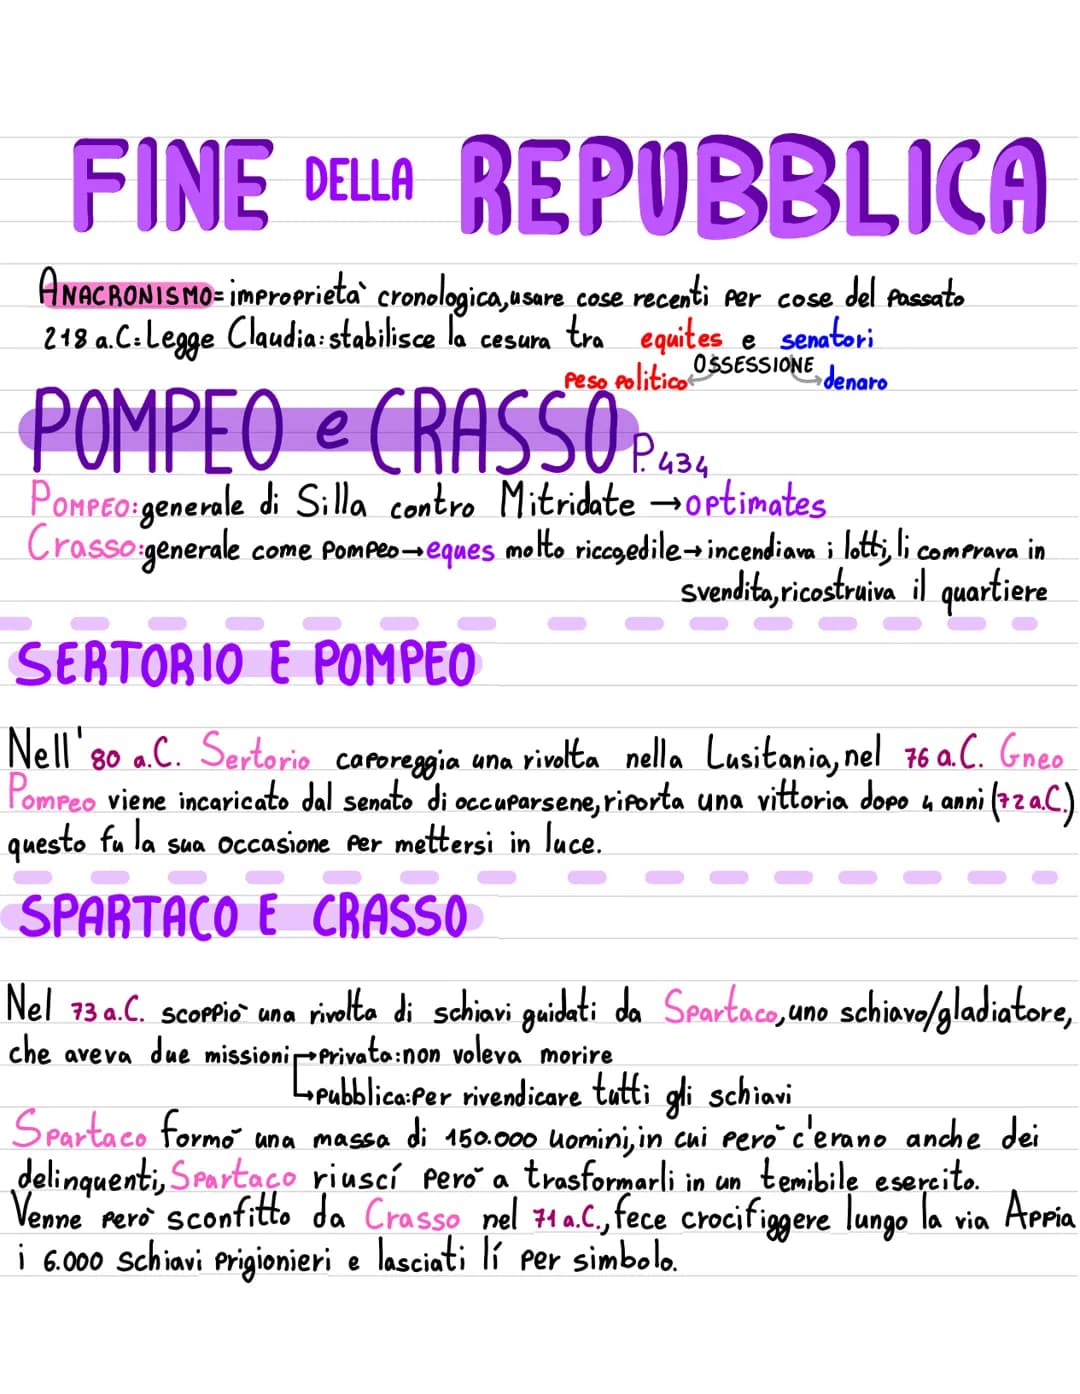 FINE DELLA REPUBBLICA
ANACRONISMO= improprietà cronologica, usare cose recenti per cose del passato
218 a.C.: Legge Claudia: stabilisce la cesura tra equites e senatori
peso politico OSSESSIONE denaro
POMPEO e CRASSO P. 434
POMPEO: generale di Silla contro Mitridate → optimates
Crasso: generale come Pompeo → eques molto ricco, edile → incendiava i lotti, li comprava in
svendita, ricostruiva il quartiere
SERTORIO E POMPEO
Nell' 80 a.C. Sertorio caporeggia una rivolta nella Lusitania, nel 76 a.C. Gneo
Pompeo viene incaricato dal senato di occuparsene, riporta una vittoria dopo 4 anni (72 a.C.)
questo fu la sua occasione per mettersi in luce.
SPARTACO E CRASSO
Nel 73 a.C. scoppiò una rivolta di schiavi guidati da Spartaco, uno schiavo/gladiatore,
che aveva due missioni → privata: non voleva morire
→ pubblica: per rivendicare tutti gli schiavi
Spartaco formò una massa di 150.000 uomini, in cui però c'erano anche dei
delinquenti, Spartaco riuscí però a trasformarli in un temibile esercito.
Venne però sconfitto da Crasso nel 71 a.C., fece crocifiggere lungo la via Appia
i 6.000 schiavi prigionieri e lasciati lí per simbolo.